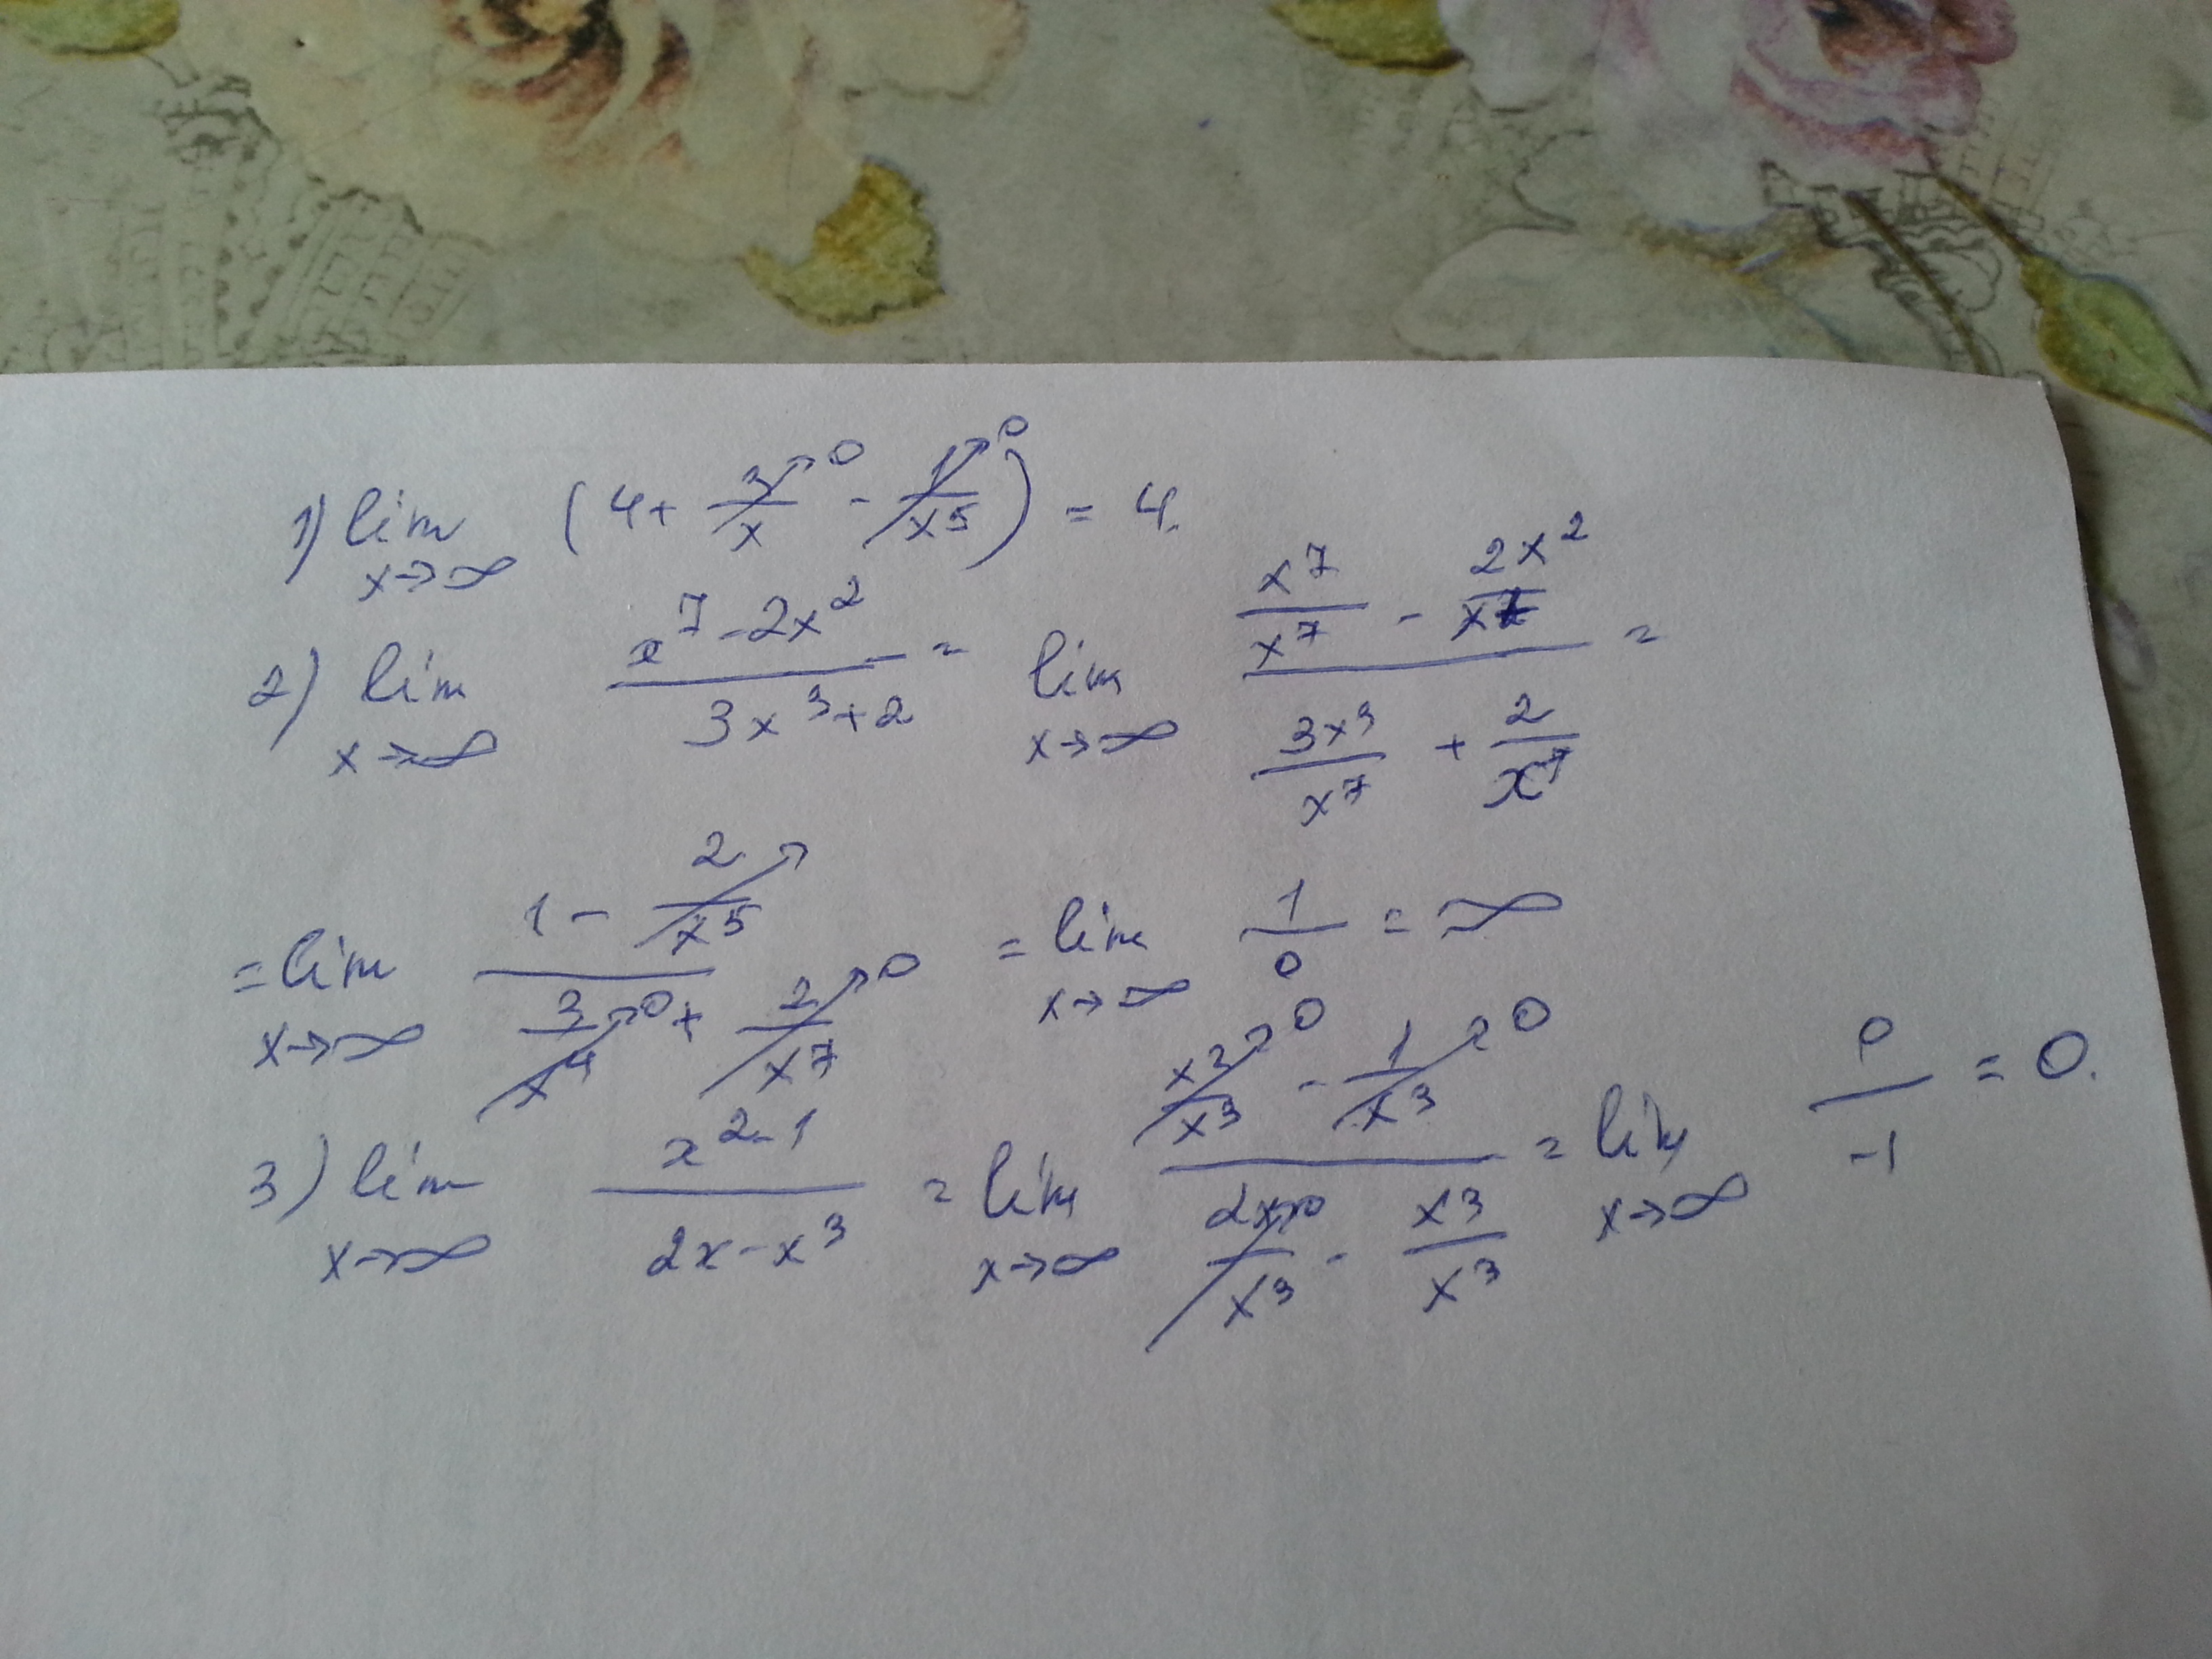 1) lim x→∞ (4 + 3/x →0 - 1/x^5 →0) = 4.
2) lim x→∞ (x^7 - 2x^2)/(3x^3 + 2) = lim x→∞ (x^7/x^7 - 2x^2/x^7)/(3x^3/x^7 + 2/x^7) =
= lim x→∞ (1 - 2/x^5 →)/(3/x^4 →0 + 2/x^7 →0) = lim x→∞ 1/0 = ∞
3) lim x→∞ (x^2 - 1)/(2x - x^3) = lim x→∞ (x^2/x^3 →0 - 1/x^3 →0)/(2x/x^3 →0 - x^3/x^3) = lim x→∞ 0/-1 = 0.